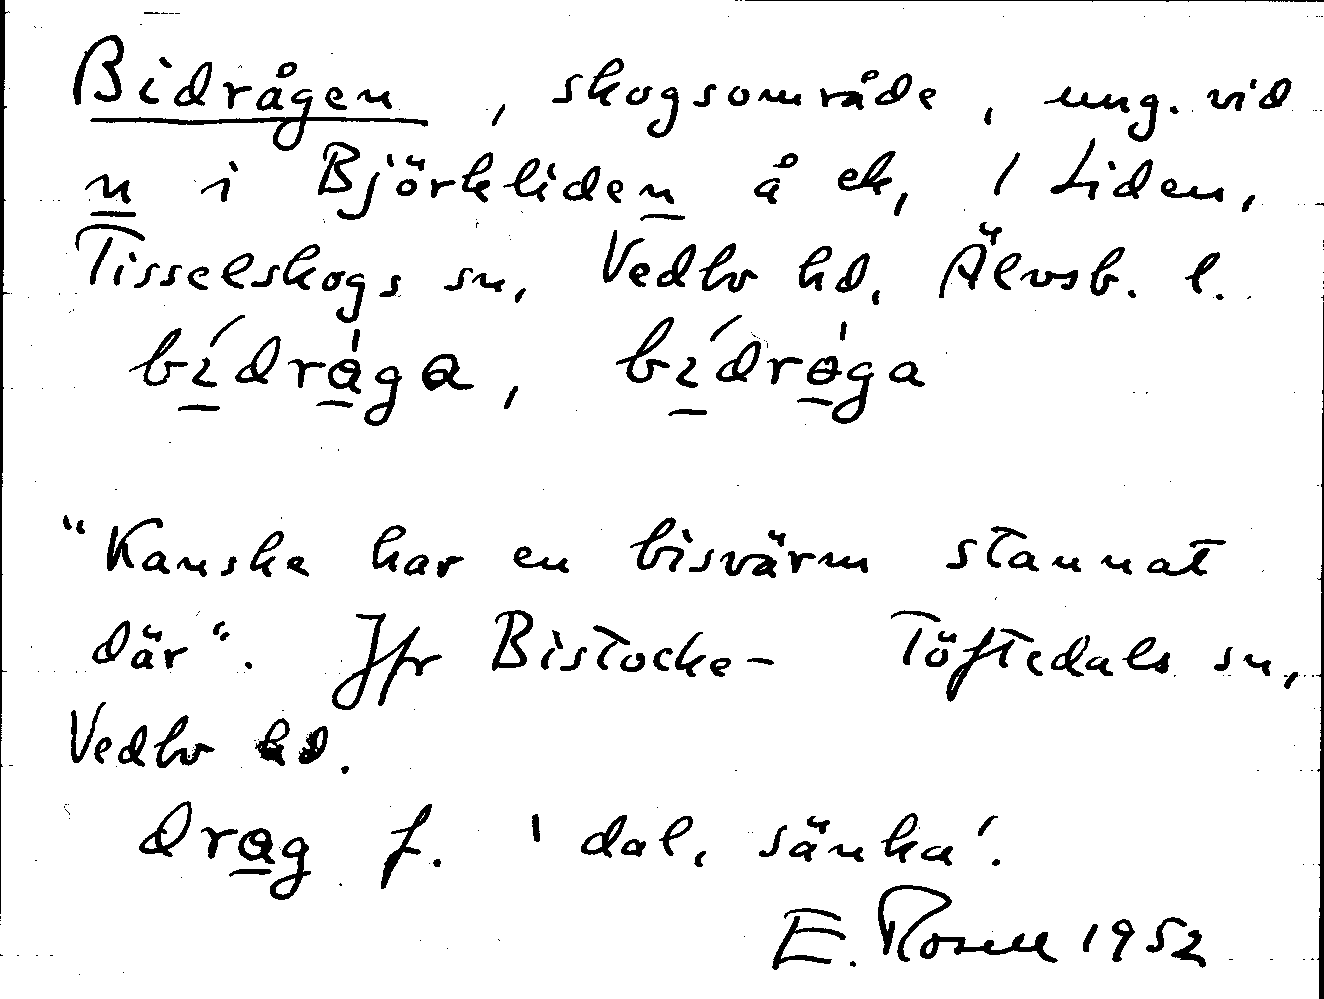 Bidrågen, skogsområde, ung. vid
n i Björkliden å ek, 1 Liden,
Tisselskogs sn, Vedbo hd, Älvsb. l.
bídràga, bídròga
"Kanske har en bisvärm stannat
där". Jfr Bistocke- Töftedals sn,
Vedbo hd.
drag f. 'dal, sänka'.
E. Rosell 1952